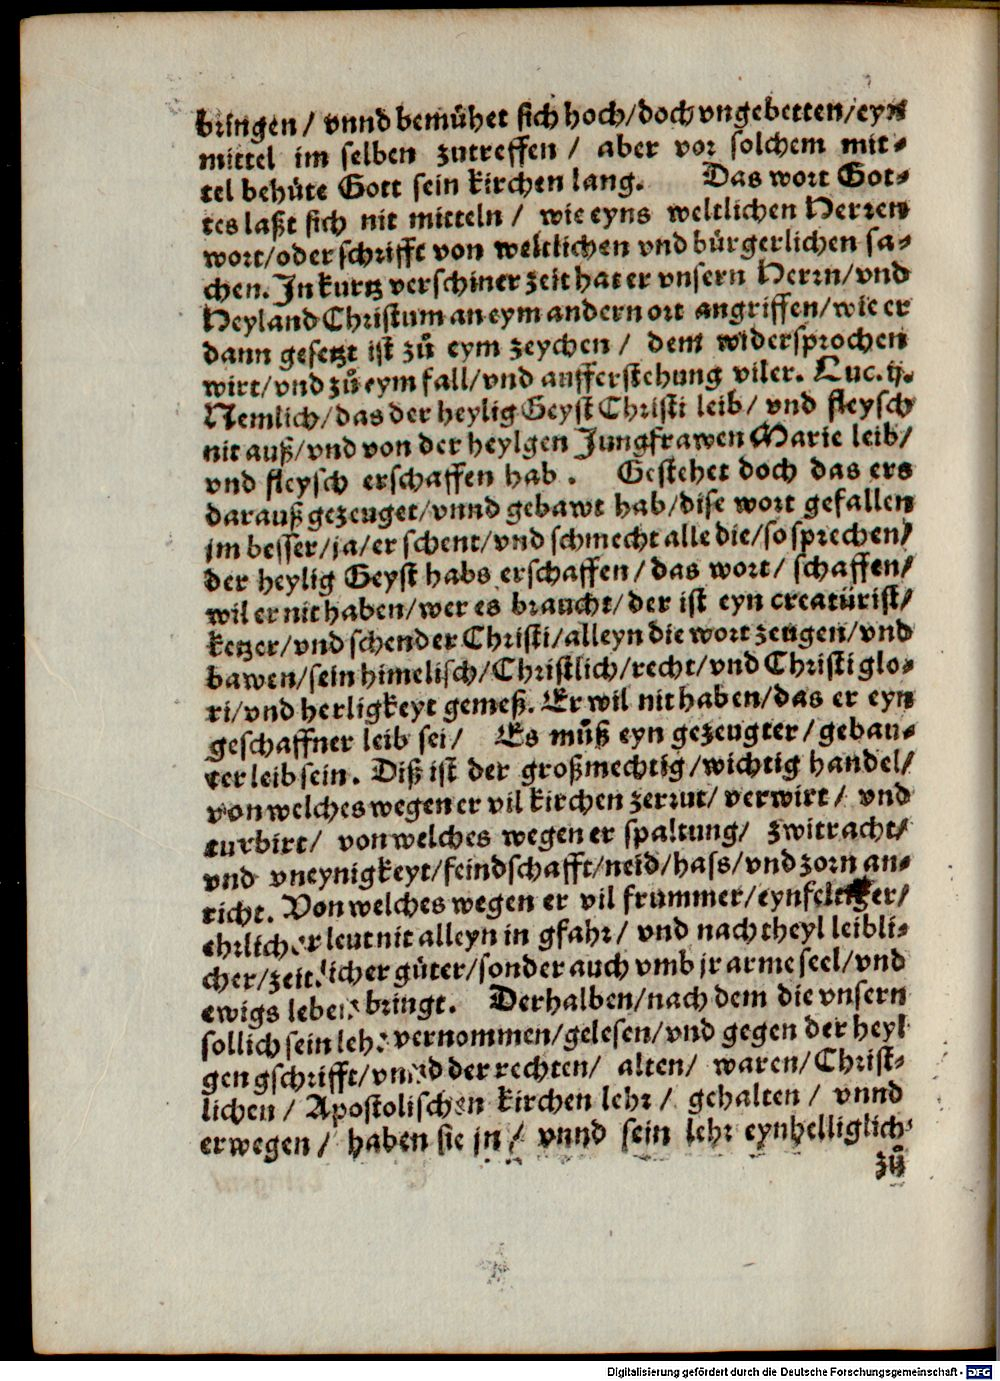 bringen / vnnd bemühet sich hoch/doch vngebetten/eyn
mittel im selben zutreffen / aber vor solchem mit-
tel behüte Gott sein kirchen lang. Das wort Got-
tes laßt sich nit mitteln / wie eyns weltlichen Herren
wort/oder schrifft von weltlichen vnd bürgerlichen sa-
chen. In kurtz verschiner zeit hat er vnsern Herrn/vnd
Heyland Christum an eym andern ort angriffen/wie er
dann gesetzt ist zů eym zeychen / dem widersprochen
wirt/vnd zů eym fall/vnd aufferstehung viler. Luc.ij.
Nemlich/das der heylig Geyst Christi leib/ vnd fleysch
nit auß/vnd von der heylgen Jungfrawen Marie leib/
vnd fleysch erschaffen hab . Gestehet doch das ers
darauß gezeuget/vnnd gebawt hab/dise wort gefallen
jm besser/ja/er schent/vnd schmecht alle die/so sprechen/
der heylig Geyst habs erschaffen/das wort/ schaffen/
wil er nit haben/wer es braucht/der ist eyn creatürist/
ketzer/vnd schender Christi/alleyn die wort zeugen/vnd
bawen/sein himelisch/Christlich/recht/vnd Christi glo-
ri/vnd herligkeyt gemeß. Er wil nit haben/das er eyn
geschaffner leib sei/ Es můß eyn gezeugter/gebau-
ter leib sein. Diß ist der großmechtig/wichtig handel/
von welches wegen er vil kirchen zerrut/ verwirt/ vnd
turbirt/ von welches wegen er spaltung/ zwitracht/
vnd vneynigkeyt/feindschafft/neid/hass/vnd zorn an-
richt. Von welches wegen er vil frummer/eynfeltiger/
ehrlicher leut nit alleyn in gfahr/ vnd nachtheyl leibli-
cher/zeitlicher güter/sonder auch vmb jr arme seel/vnd
ewigs leben bringt. Derhalben/nach dem die vnsern
sollich sein lehr vernommen/gelesen/vnd gegen der heyl
gen gschrifft/vnnd der rechten/ alten/ waren/Christ-
lichen / Apostolischen kirchen lehr / gehalten / vnnd
erwegen / haben sie jn / vnnd sein lehr eynhelliglich
zů
Digitalisierung gefördert durch die Deutsche Forschungsgemeinschaft - DFG